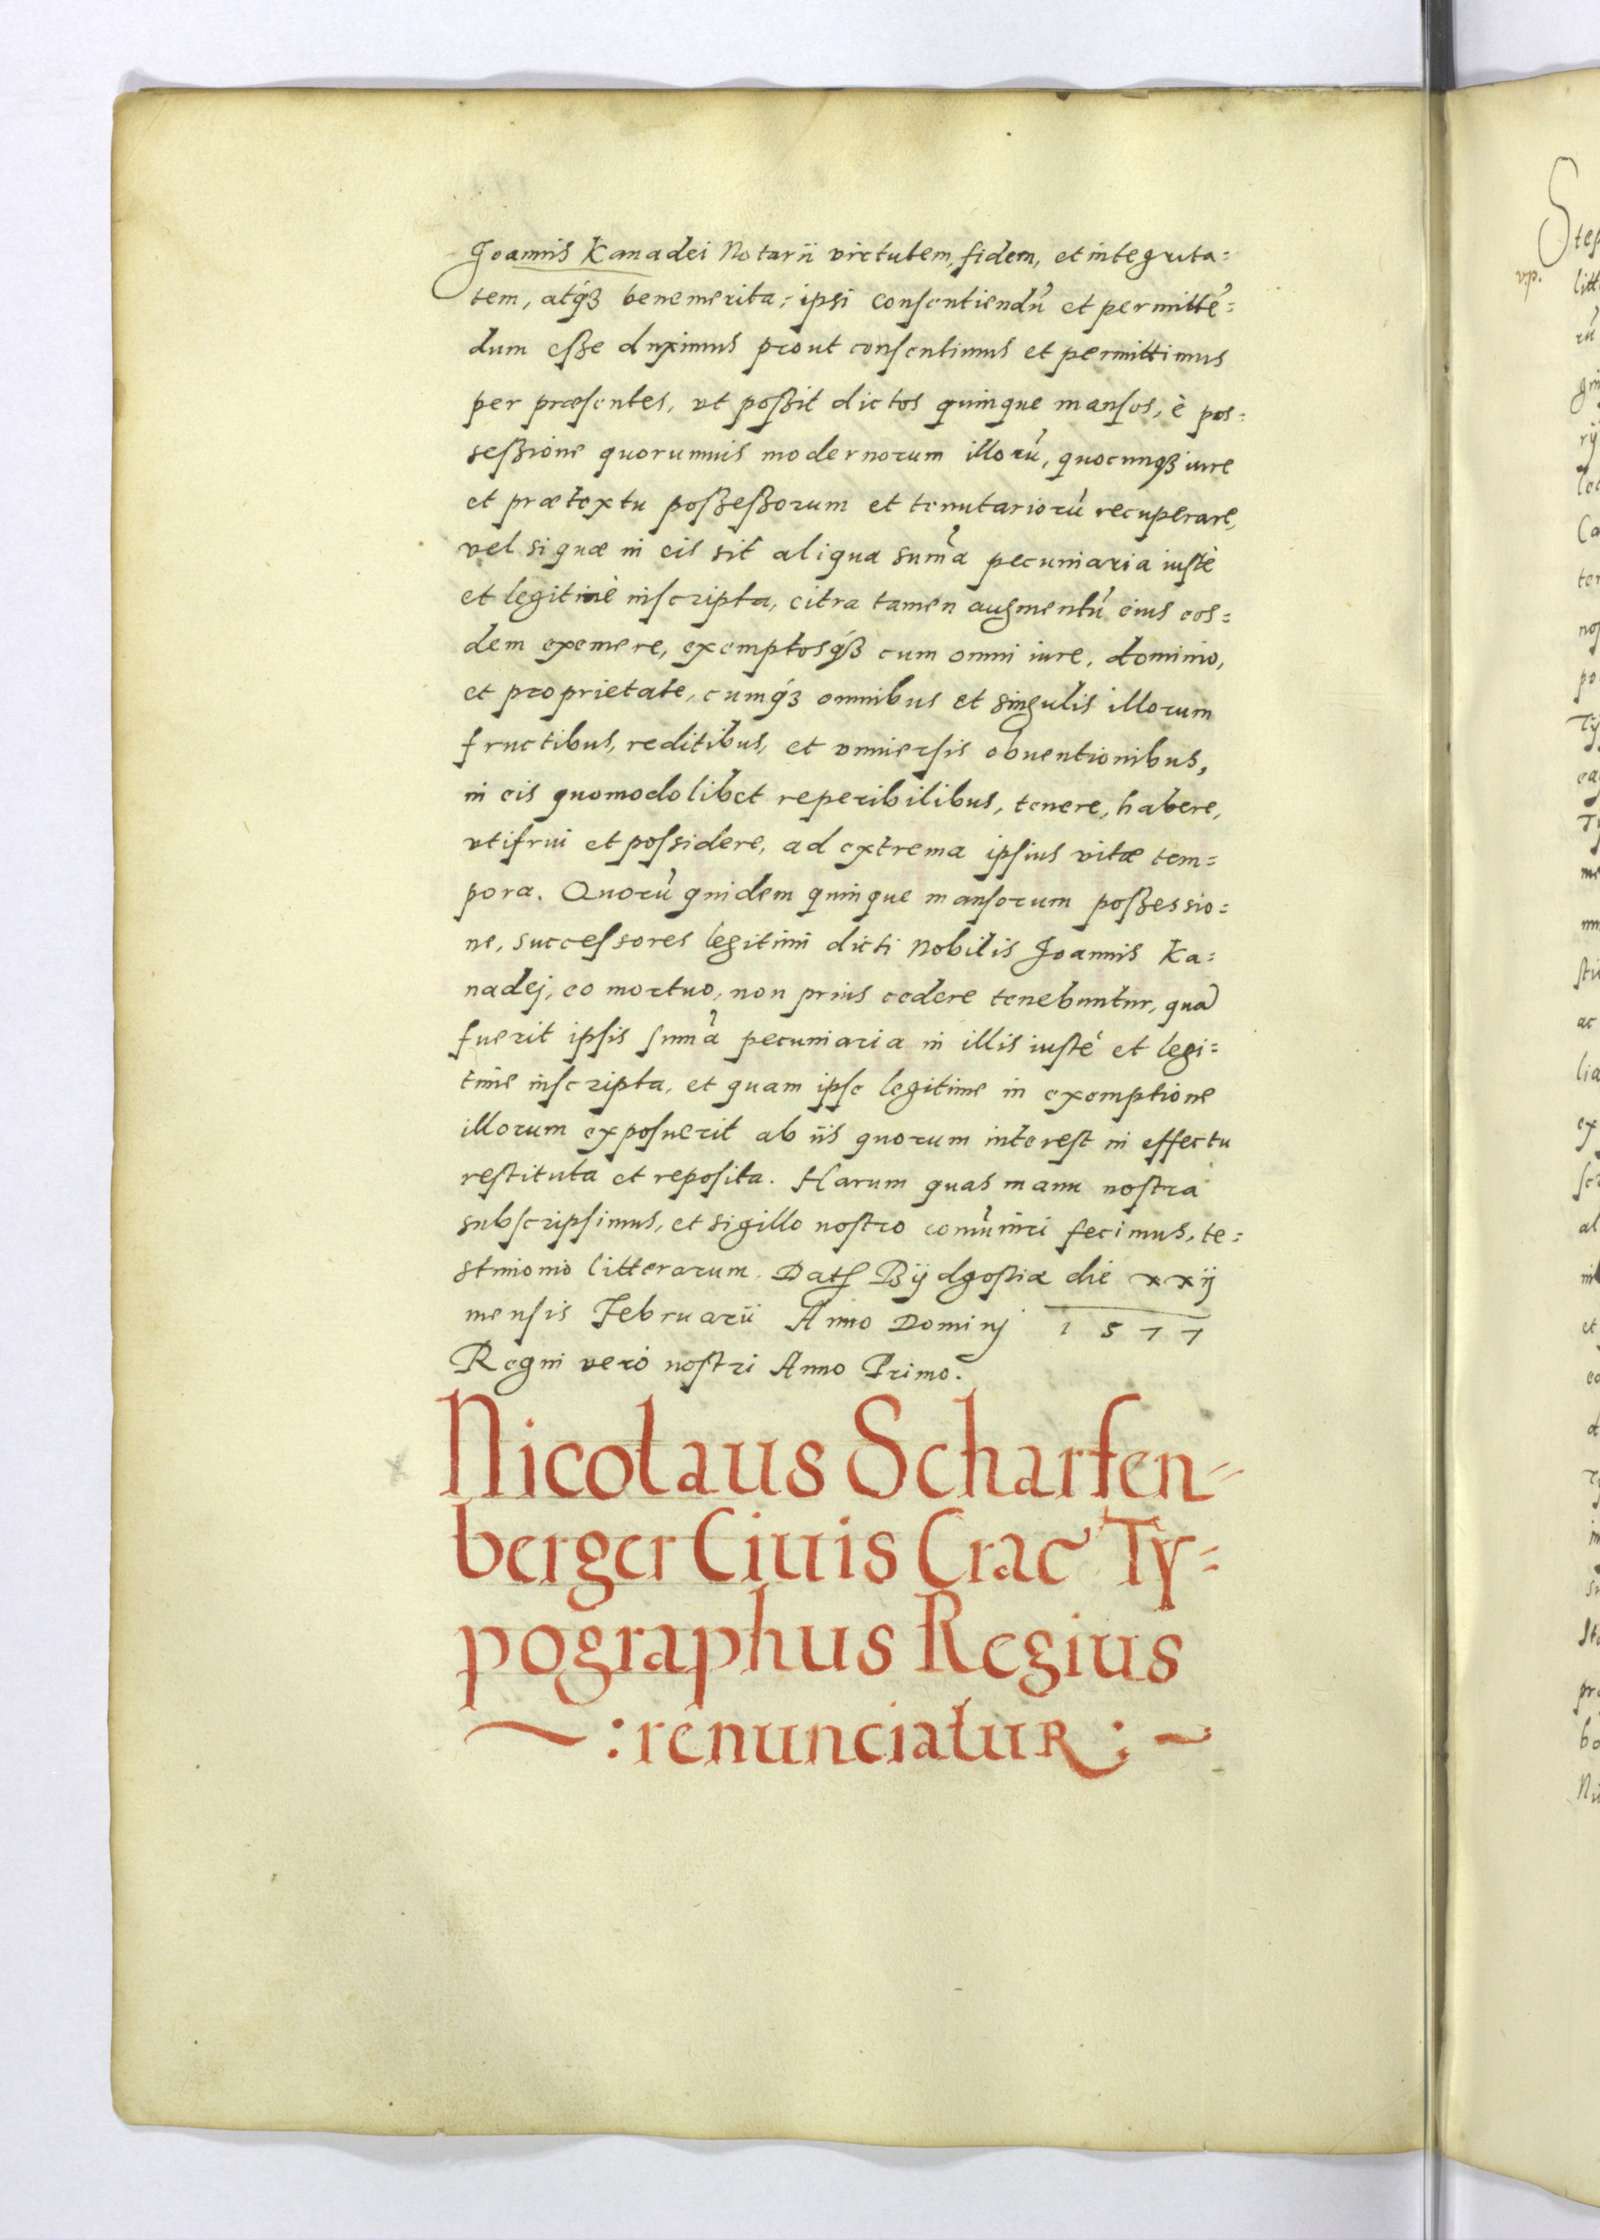 Joannis Kanadei Notarii virtutem, fidem, et integrita=
tem, atq́ꝫ benemerita, ipsi consentiendū et permittē=
dum eße duximus prout consentimus et permittimus
per præsentes, vt poßit dictos quinque mansos, è pos=
seßione quorumuis modernorum illorū, quocunqꝫ iure
et prætextu poßeßorum et tenutariorū recuperare,
vel si quæ in eis sit aliqua sum̃a pecuniaria iustè
et legitimè inscripta, citra tamen augmentū eius eos=
dem exemere, exemptosq́ꝫ cum omni iure, dominio,
et proprietate, cumq́ꝫ omnibus et singulis illorum
fructibus, reditibus, et vniuersis obuentionibus,
in eis quomodolibet reperibilibus, tenere, habere,
vtifrui et possidere, ad extrema ipsius vitæ tem=
pora. Quorū quidem quinque mansorum poßessio=
ne, successores legitimi dicti Nobilis Joannis Ka=
nadej, eo mortuo, non prius cedere tenebuntur, quā
fuerit ipsis sum̃a pecuniaria in illis iustè et legi=
time inscripta, et quam ipse legitime in exemptione
illorum exposuerit ab iis quorum interest in effectu
restituta et reposita. Harum quas manu nostra
subscripsimus, et sigillo nostro com̃uniri fecimus, te=
stimonio litterarum. Datꝭ Bÿdgostiæ die xxij
mensis Februarii Anno Dominj 1577
Regni verò nostri Anno Primo.
Nicolaus Scharfen=
berger Ciuis Crac̃ Ty=
pographus Regius
~ : renunciatuR : ~
Step
vp.
litt